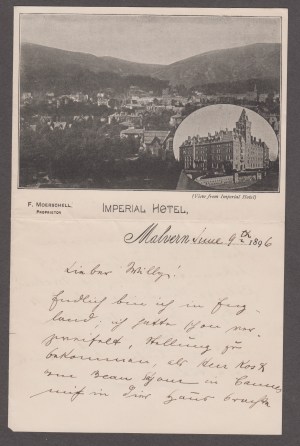 (View from Imperial Hotel)
F. MOERSCHELL,
PROPRIETOR
IMPERIAL HOTEL,
Malvern June 9th 1896
Lieber Willy!
Endlich bin ich in Eng-
land, ich hatte schon ver-
zweifelt, Stellung zu
bekommen, als Herr
in Cannes
mich in dies Haus brachte